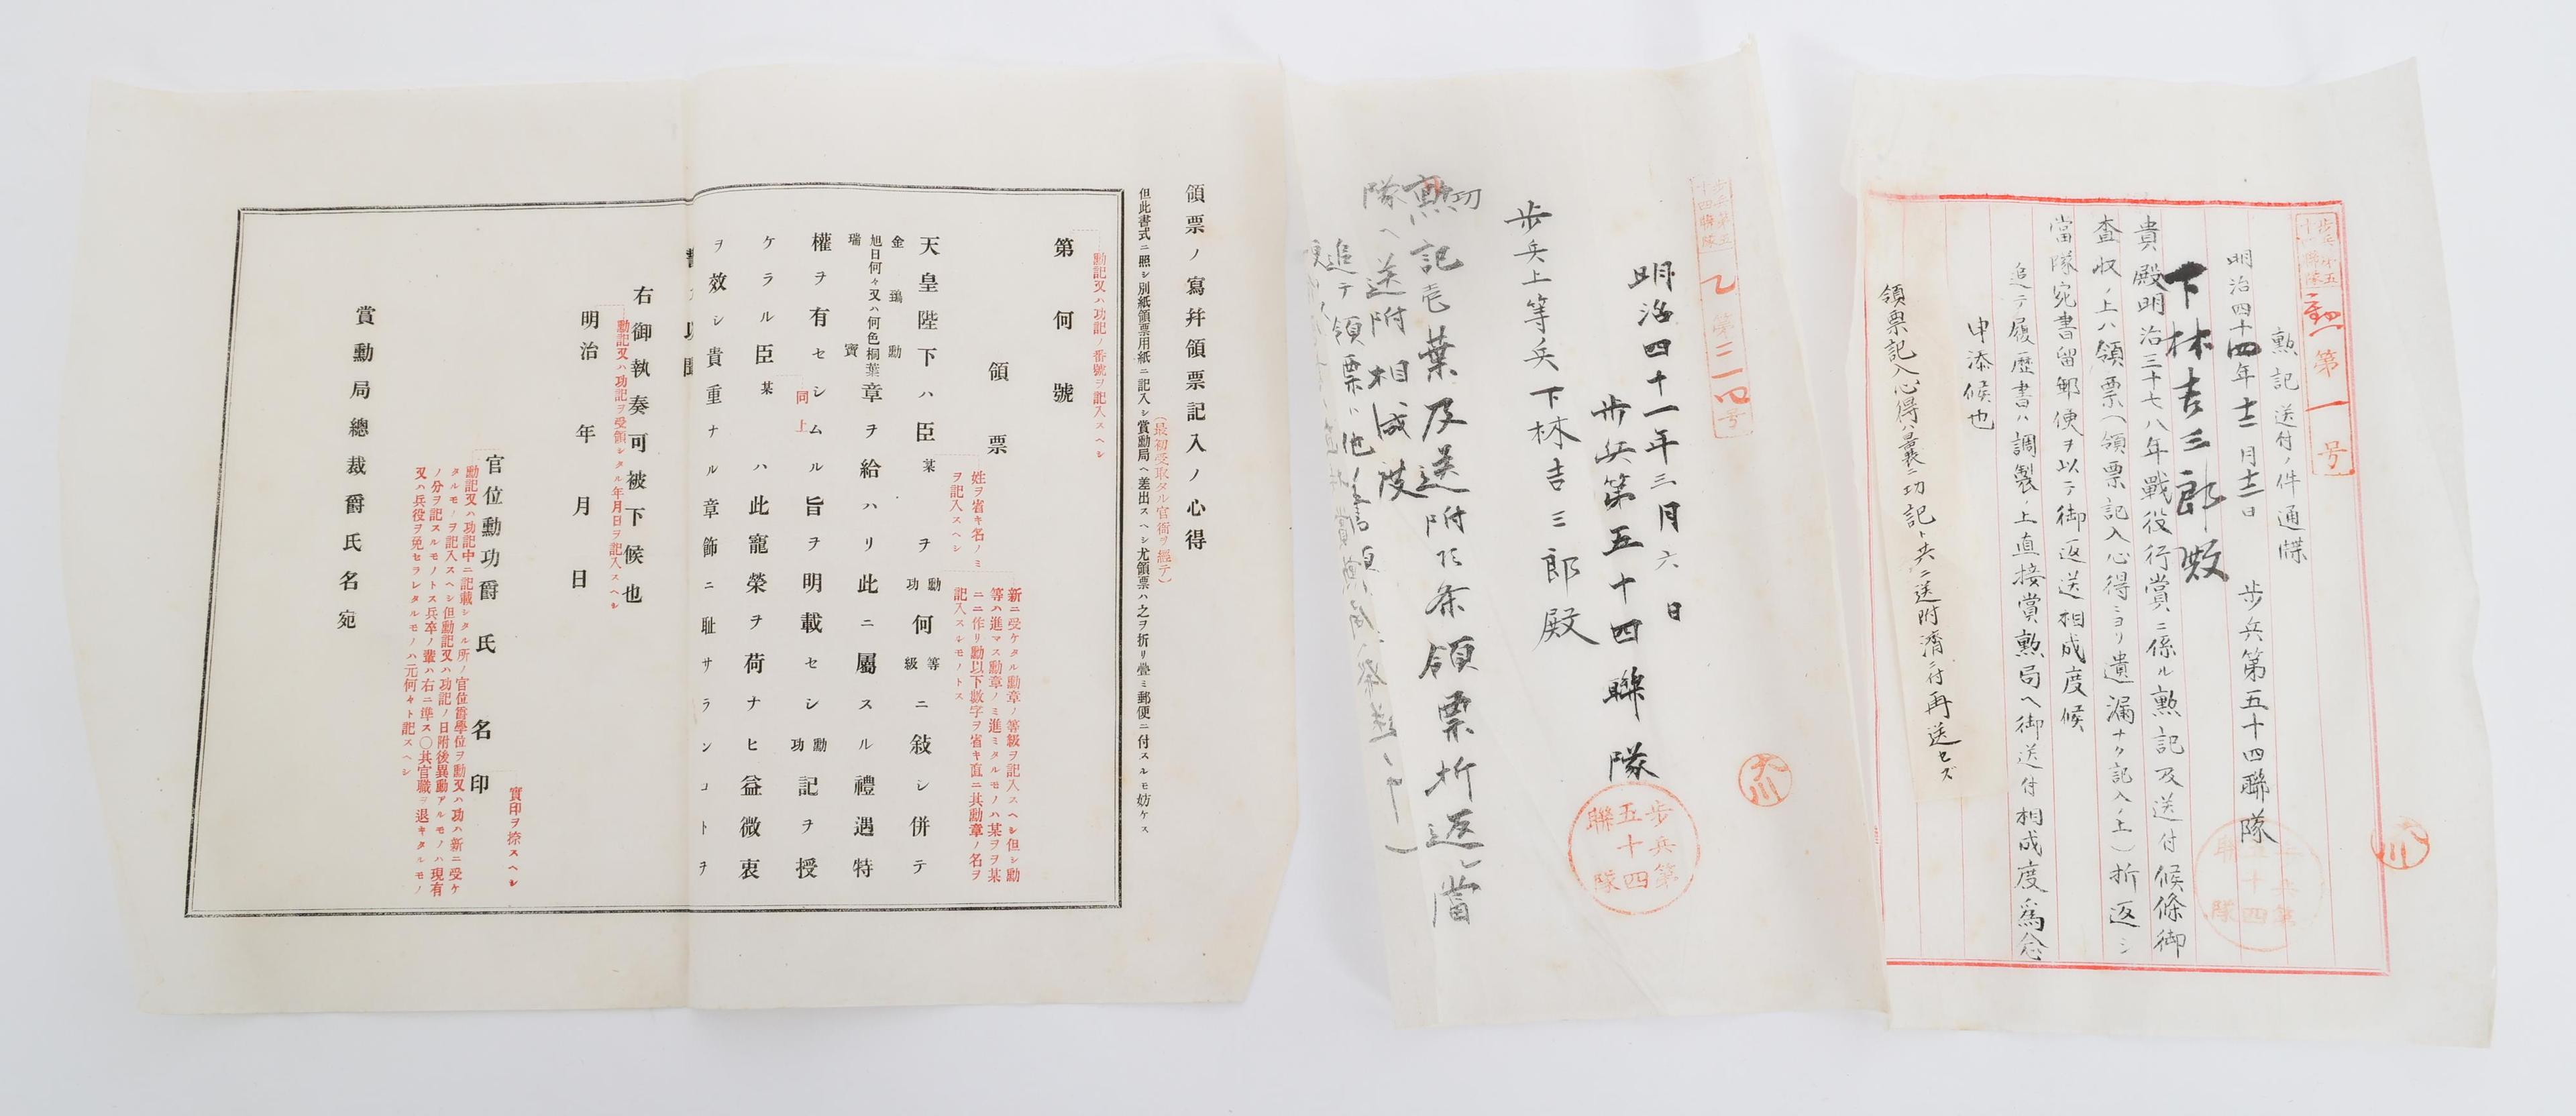 勲第一号
勲記送付ノ件通牒
明治四十四年十二月十二日 歩兵第五十四聯隊
下林吉三郎殿
貴殿明治三十七八年戰役行賞ニ係ル勲記及送付候條御
査収ノ上ハ領票(領票記入心得ニヨリ遺漏ナク記入ノ上)折返シ
當隊宛書留郵便ヲ以テ御返送相成度候
追テ履歴書ハ調製ノ上直接賞勲局ヘ御送付相成度爲念
申添候也
領票記入心得ハ曩ニ功記ト共ニ送附濟ニ付再送セズ
大川
歩兵第五十四聯隊
乙第二一四号
明治四十一年三月六日
歩兵第五十四聯隊
歩兵第五十四聯隊
大川
歩兵上等兵下林吉三郎殿
功
勲記壱葉及送附候条領票折返シ當
隊ヘ送附相成度
追テ領票ハ他
領票ノ寫幷領票記入ノ心得
(最初受取タル官衙ヲ經テ)
但此書式ニ照シ別紙領票用紙ニ記入シ賞勳局ヘ差出スヘシ尤領票ハ之ヲ折リ疊ミ郵便ニ付スルモ妨ケス
勳記又ハ功記ノ番號ヲ記入スヘシ
第何號
領票
新ニ受ケタル勳章ノ等級ヲ記入スヘシ但シ勳
等ハ進マス勳章ノミ進ミタルモノハ某ヲヲ某
ニニ作リ勳以下數字ヲ省キ直ニ其勳章ノ名ヲ
記入スルモノトス
姓ヲ省キ名ノミ
ヲ記入スヘシ
天皇陛下ハ臣某ヲ勳功何等級ニ敍シ併テ
金鵄勳
旭日何々又ハ何色桐葉章ヲ給ハリ此ニ屬スル禮遇特
瑞寶
權ヲ有セシムル旨ヲ明載セシ勳功記ヲ授
同上
ケラル臣某ハ此寵榮ヲ荷ナヒ益微衷
ヲ效シ貴重ナル章飾ニ耻サランコトヲ
誓フ以聞
右御執奏可被下候也
勳記又ハ功記ヲ受領シタル年月日ヲ記入スヘシ
明治年月日
實印ヲ捺スヘシ
官位勳功爵氏名印
勳記又ハ功記中ニ記載シタル所ノ官位爵學位ヲ勳又ハ功ハ新ニ受ケ
タルモノヲ記入スヘシ但勳記又ハ功記ノ日附後異動アルモノハ現有
ノ分ヲ記スルモノトス兵卒ノ輩ハ右ニ準ス〇其官職ヲ退キタルモノ
又ハ兵役ヲ免セラレタルモノハ元何々ト記スヘシ
賞勳局總裁爵氏名宛